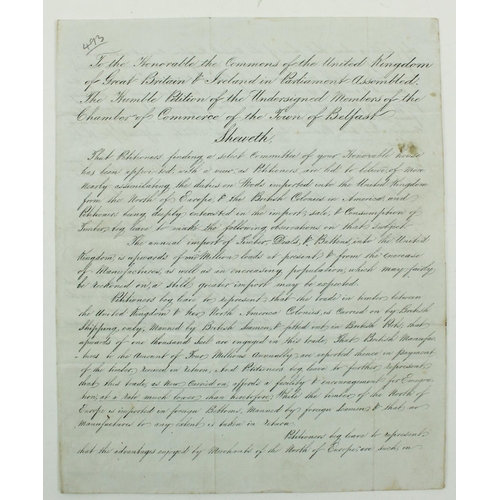 493
To the Honorable the Commons of the United Kingdom
of Great Britain & Ireland in Parliament Assembled;
The Humble Petition of the Undersigned Members of the
Chamber of Commerce of the Town of Belfast
Sheweth,
That Petitioners finding a select Committee of your Honorable house
has been appointed, with a view, as Petitioners are led to believe, of more
nearly assimilating the duties on Wood imported into the United Kingdom
from the North of Europe, & the British Colonies in America, and
Petitioners being deeply interested in the import, sale, & Consumption of
Timber, beg leave to make the following observations on that subject
The annual import of Timber, Deals, & Battens, into the United
Kingdom, is upwards of Million loads at present, & from the increase
of Manufactures, as well as an increasing population, which may fairly
be reckoned on, a still greater import may be expected.
Petitioners beg leave to represent that the trade in timber between
the United Kingdom & Her North America Colonies, is Carried on by British
Shipping, only, Manned by British Seamen, & fitted out in British Ports, that
upwards of one thousand Sail are engaged in this trade, That British Manufac
tures to the Amount of Four Millions Annually are exported thence in payment
of the timber received in return, And Petitioners beg leave to further represent
that this trade, as now Carried on affords a facility & encouragement for Emigra
tion, at a rate much lower than heretofore, While the timber of the North of
Europe is imported in foreign Bottoms, Manned by foreign Seamen & that no
Manufactures to any extent is taken in return
Petitioners beg leave to represent,
that the advantages enjoyed by Merchants of the North of Europe are such, in